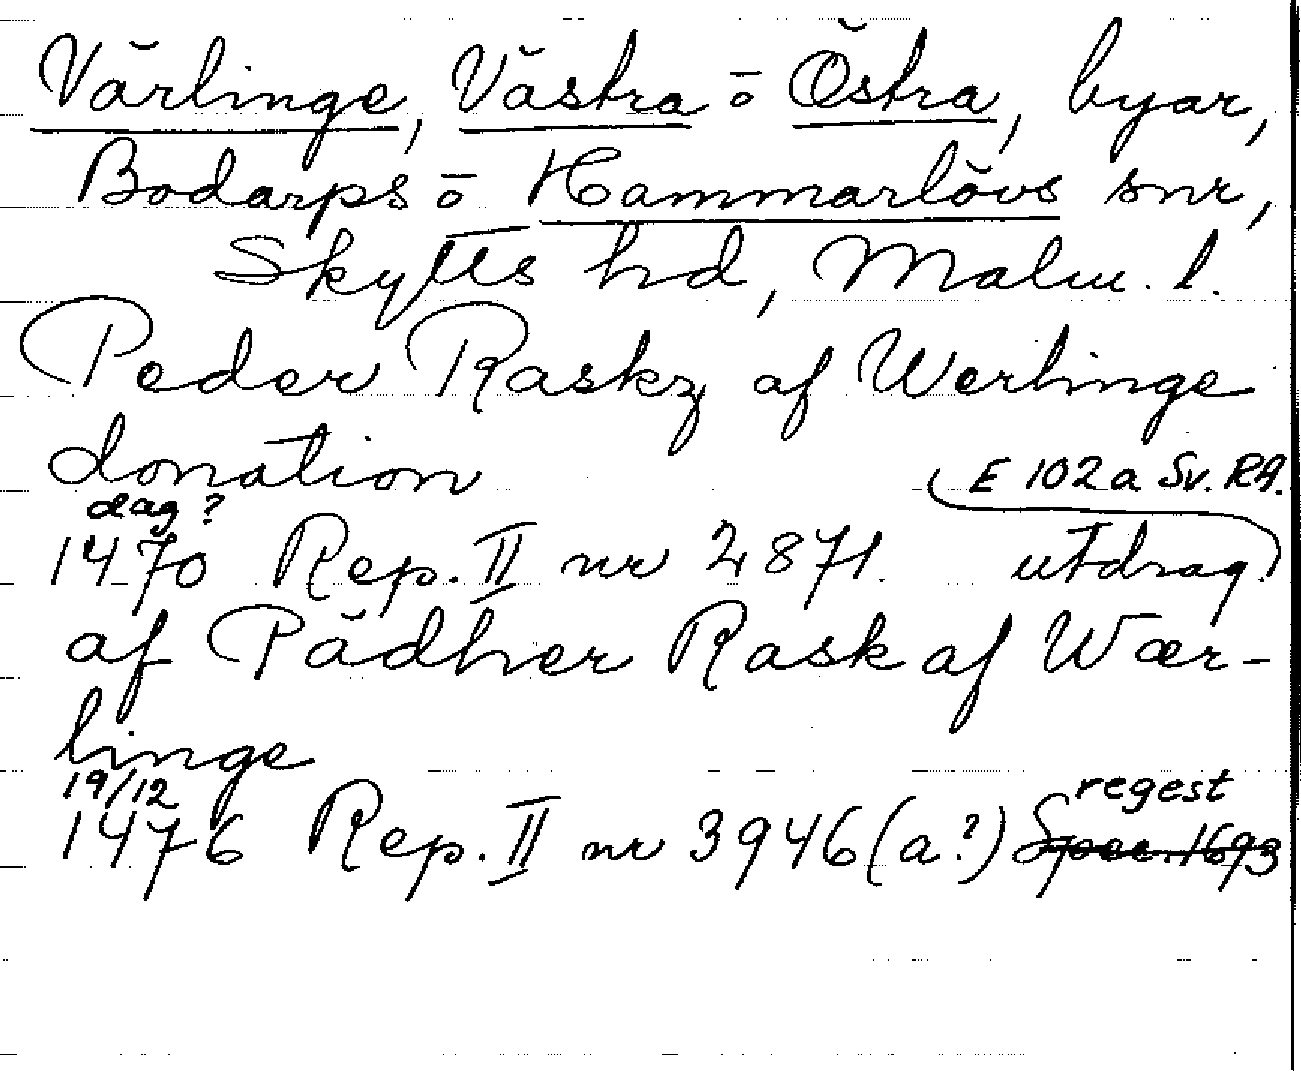 Värlinge, Västra o Östra, byar,
Bodarps o Hammarlövs snr,
Skytts hd, Malm. l.
Peder Raskz af Werlinge
donation
E 102a Sv. RA.
dag?
1470 Rep. II nr 2871. utdrag
af Pädher Rask af Wær-
linge
19/12 regest
1476 Rep. II nr 3946 (a?) Spec. 1693